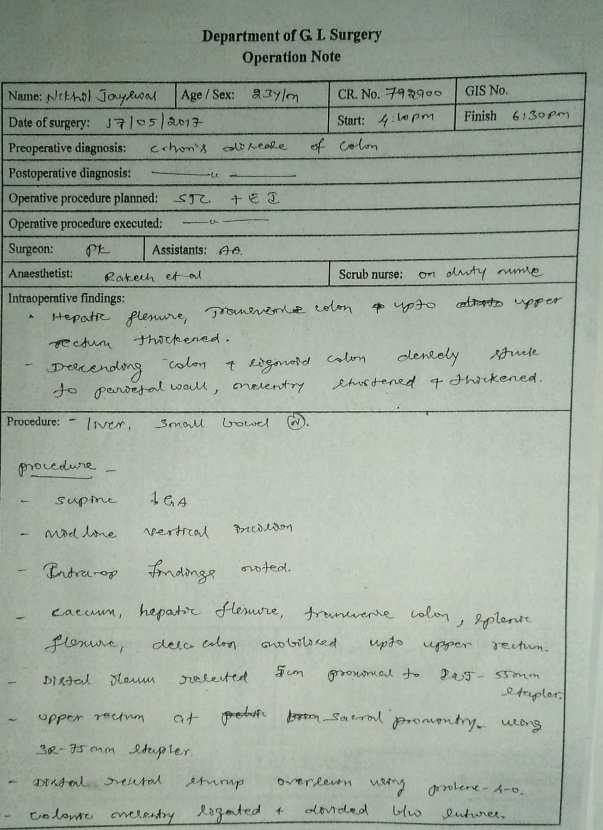 Department of G. I. Surgery
Operation Note
Name: Nikhil Jayswal Age / Sex: 23Y/M CR. No. 792900 GIS No.
Date of surgery: 17/05/2017 Start: 4:10pm Finish 6:30pm
Preoperative diagnosis: crhon's disease of colon
Postoperative diagnosis: —u—
Operative procedure planned: STC + E I
Operative procedure executed: —u—
Surgeon: PK Assistants: AA.
Anaesthetist: Rakesh et al Scrub nurse: on duty nurse
Intraoperative findings:
- Hepatic flexure, transverse colon upto upper
rectum thickened.
- Descending colon & sigmoid colon densely stuck
to parietal wall, mesentry shortened & thickened.
Procedure: - liver, small bowel (N).
procedure -
- supine ↓ GA
- midline vertical incision
- Intra-op findings noted.
- caecum, hepatic flexure, transverse colon, splenic
flexure, desc colon mobilised upto upper rectum.
- Distal ileum resected 5cm proximal to - 55mm
stapler.
- upper rectum at sacral promontry using
30-75 mm stapler.
- Distal rectal stump oversewn using prolene-4-0.
- Colonic mesentry ligated & divided b/w sutures.